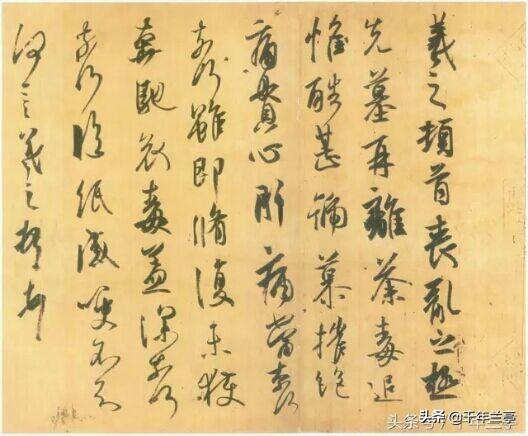 羲之頓首喪亂之極
先墓再離荼毒追
惟酷甚號慕摧絕
痛貫心肝痛當奈何
奈何雖即脩復未獲
奔馳哀毒益深奈何
奈何臨紙感哽不知
何言羲之頓首頓首
头条 @千年兰亭